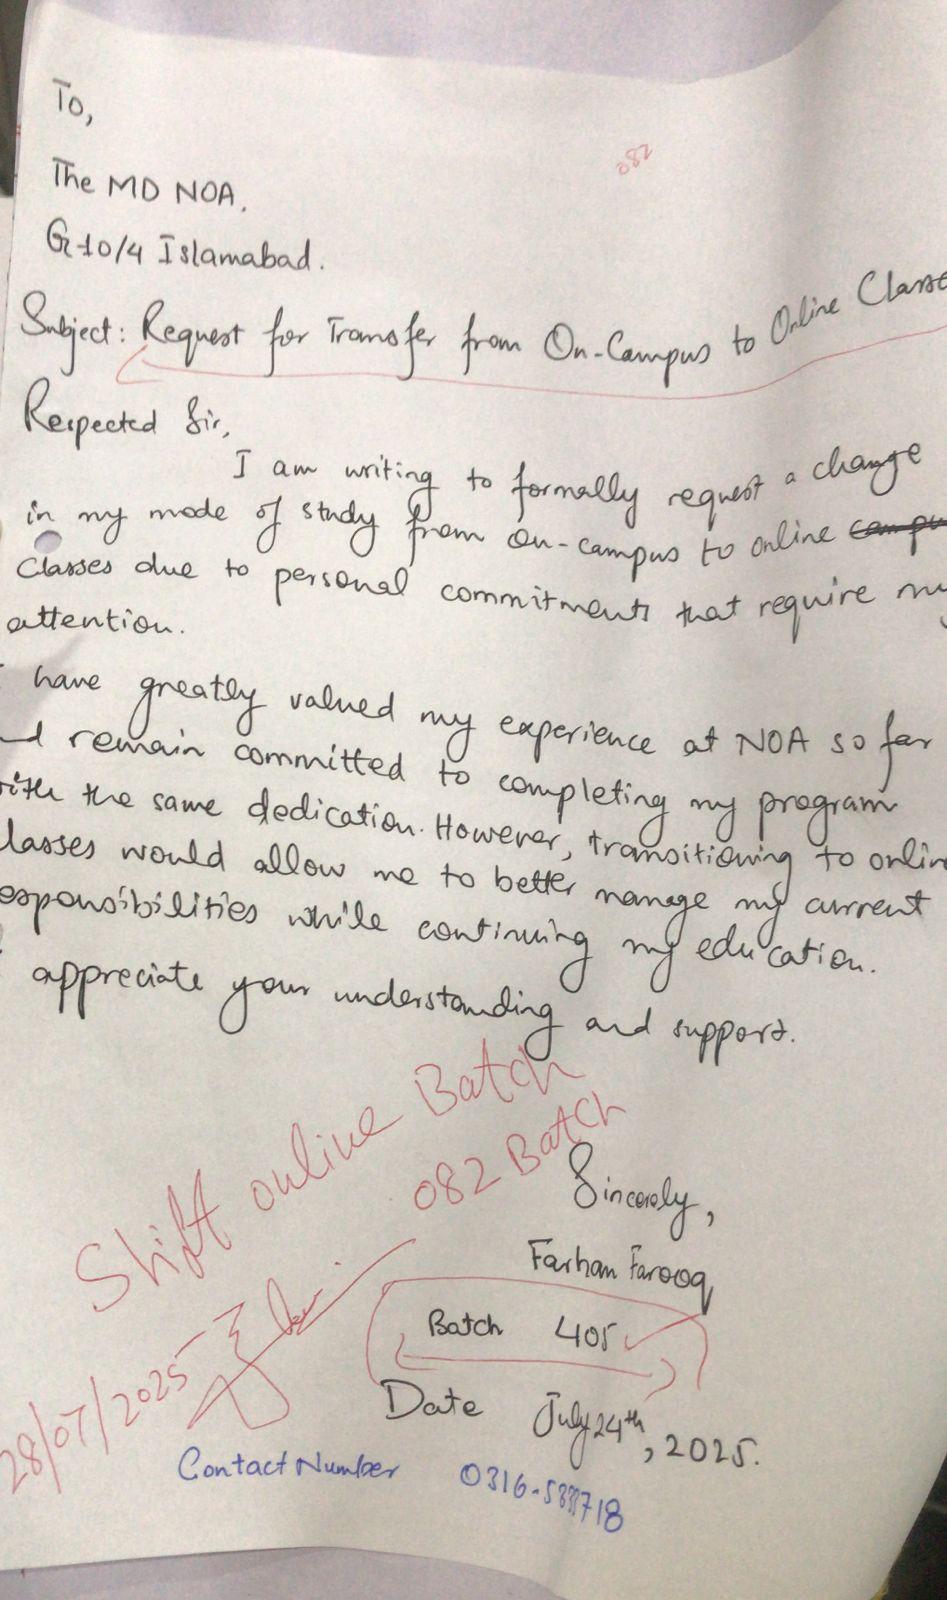 To,
082
The MD NOA.
G-10/4 Islamabad.
Subject: Request for Transfer from On-Campus to Online Classe
Respected Sir,
I am writing to formally request a change
in my mode of study from on-campus to online campu
classes due to personal commitments that require my
attention.
I have greatly valued my experience at NOA so far
nd remain committed to completing my program
ith the same dedication. However, transitioning to onlin
lasses would allow me to better manage my current
esponsibilities while continuing my education.
I appreciate your understanding and support.
Shift online Batch
082 Batch
Sincerely,
Farhan Farooq
Batch 405
28/07/2025
Date July 24th, 2025.
Contact Number